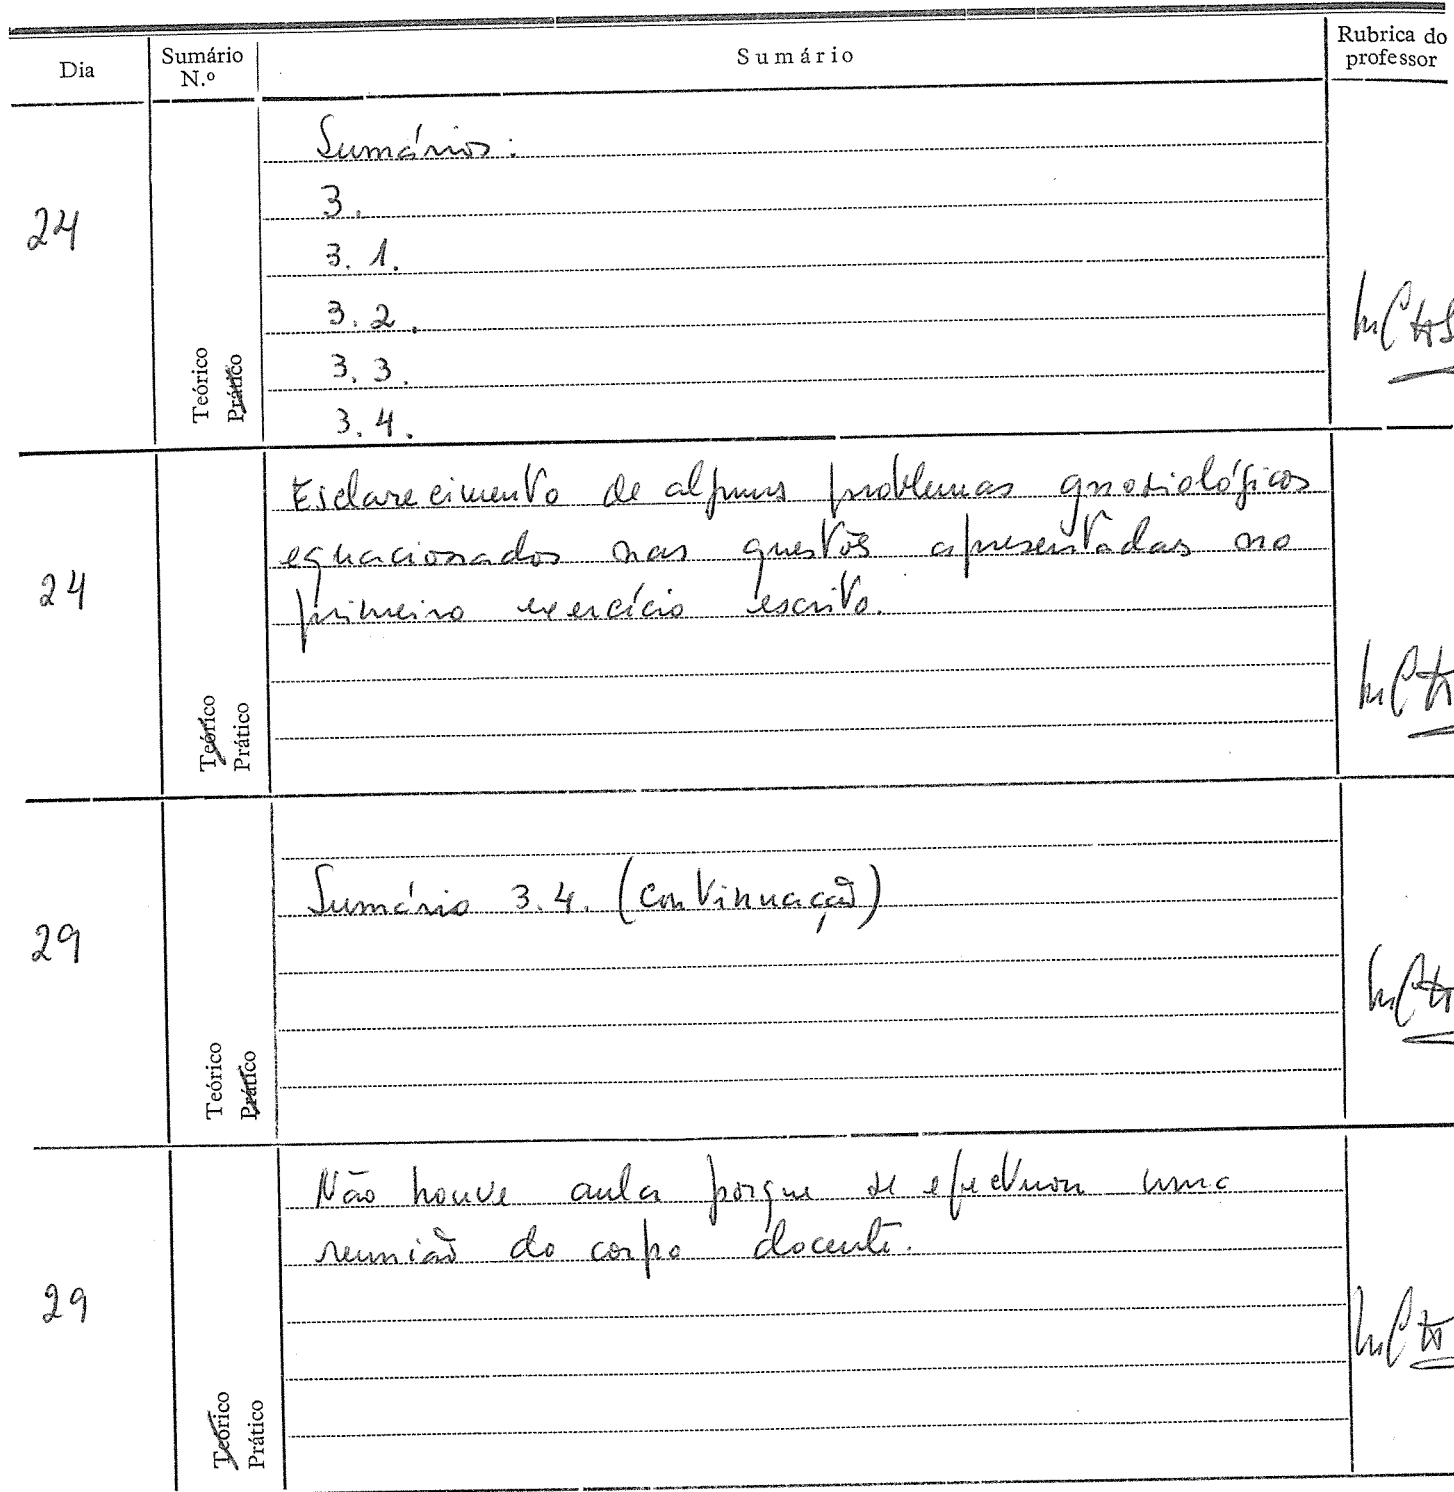 Dia
Sumário
N.º
Sumário
Rubrica do
professor
24
Teórico
Prático
Sumários:
3.
3.1.
3.2.
3.3.
3.4.
24
Teórico
Prático
Esclarecimento de alguns problemas gnosiológicos
equacionados nas questões apresentadas no
primeiro exercício escrito.
29
Teórico
Prático
Sumário 3.4. (Continuação)
29
Teórico
Prático
Não houve aula porque se efectuou uma
reunião do corpo docente.